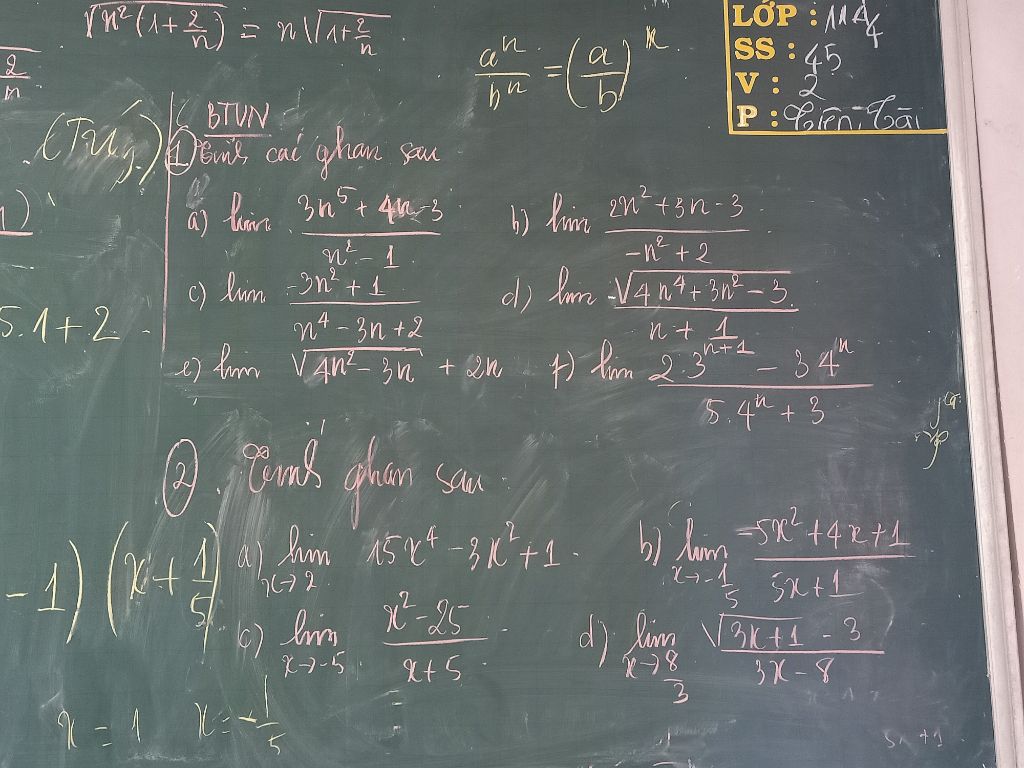 √(n²(1+2/n)) = n√(1+2/n)
aⁿ/bⁿ = (a/b)ⁿ
LỚP : 11A4
SS : 45
V : 2
P : Tiên, Tài
2/n
BTVN
① Tính các ghạn sau
a) lim (3n⁵ + 4n - 3)/(n² - 1)
b) lim (2n² + 3n - 3)/(-n² + 2)
c) lim (-3n² + 1)/(n⁴ - 3n + 2)
d) lim √(4n⁴ + 3n² - 3)/(n + 1)
e) lim √(4n² - 3n) + 2n
f) lim (2.3ⁿ⁺¹ - 3 4ⁿ)/(5.4ⁿ + 3)
5.1+2
② Tính ghạn sau
a) lim x→2 15x⁴ - 3x² + 1
b) lim x→-1/5 (-5x² + 4x + 1)/(5x + 1)
-1)(x + 1/5)
c) lim x→-5 (x² - 25)/(x + 5)
d) lim x→8/3 (√(3x+1) - 3)/(3x - 8)
x = 1 x = -1/5